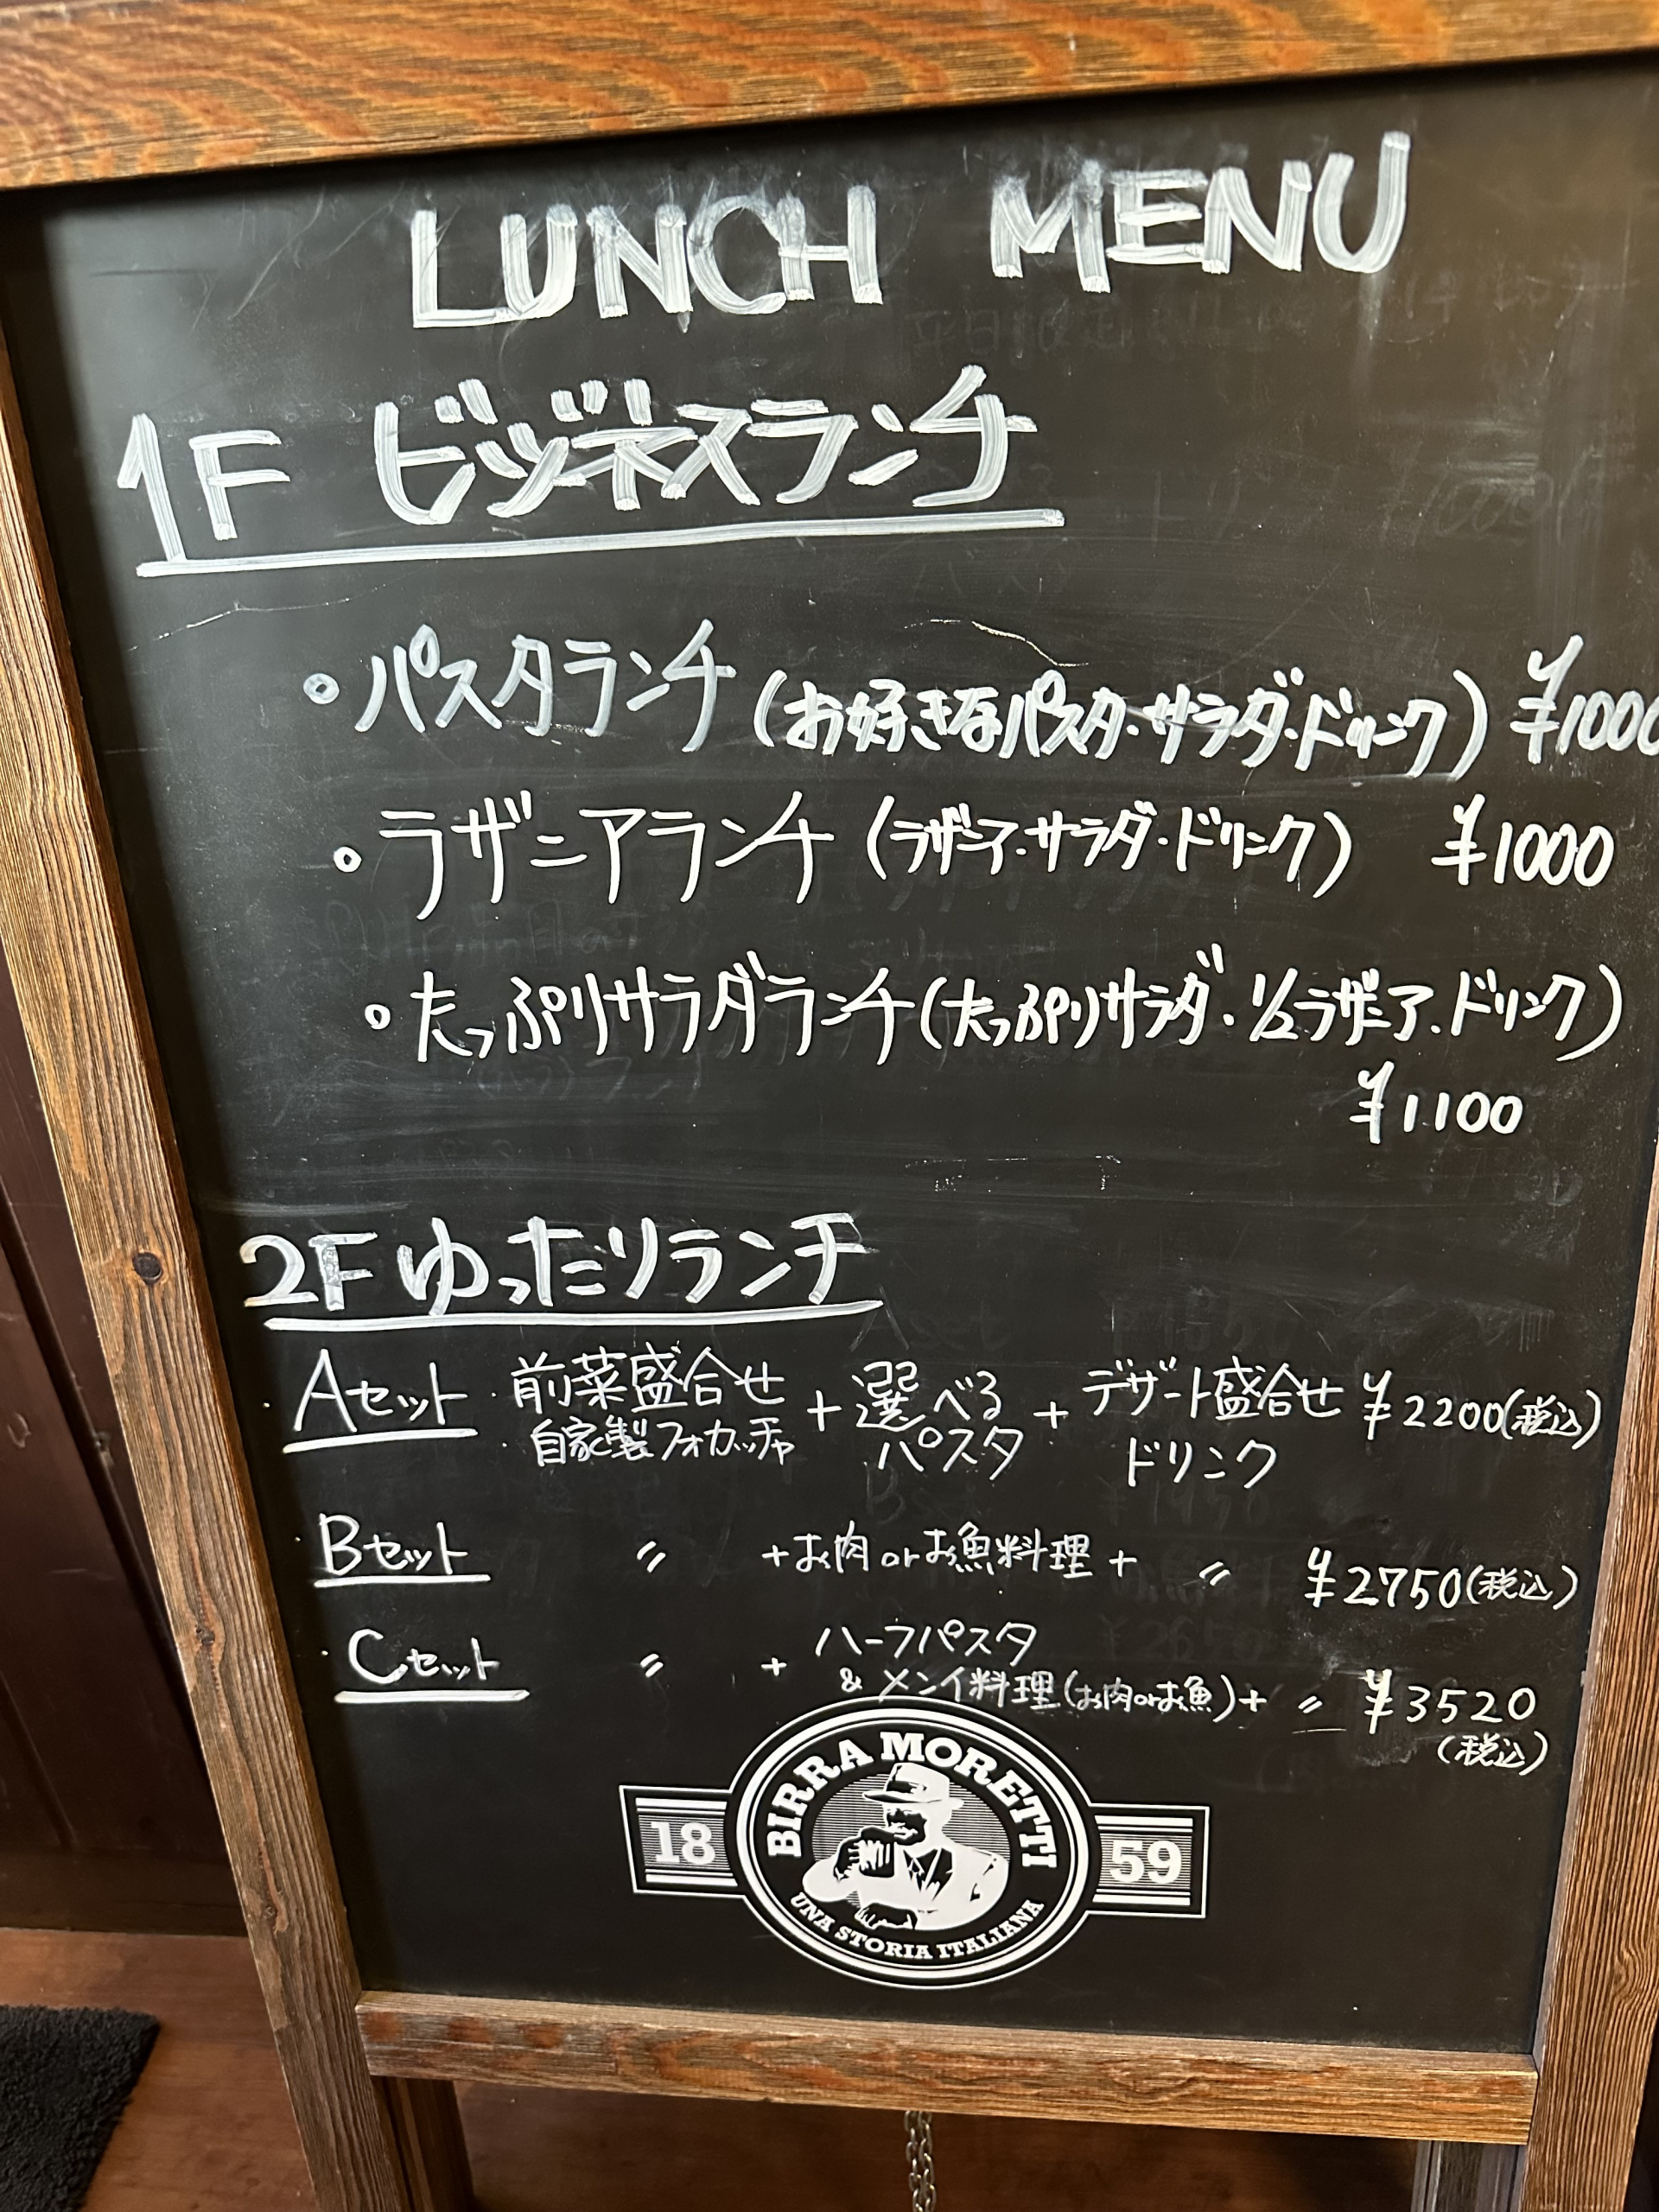 LUNCH MENU
1F ビジネスランチ
・パスタランチ(お好きなパスタ・サラダ・ドリンク) ¥1000
・ラザニアランチ(ラザニア・サラダ・ドリンク) ¥1000
・たっぷりサラダランチ(たっぷりサラダ・1/2ラザニア・ドリンク)
¥1100
2F ゆったりランチ
・Aセット ・前菜盛合せ + 選べる + デザート盛合せ ¥2200(税込)
・自家製フォカッチャ パスタ ドリンク
・Bセット 〃 +お肉orお魚料理+ 〃 ¥2750(税込)
・Cセット 〃 + ハーフパスタ
& メンイ料理(お肉orお魚)+ 〃 ¥3520
(税込)
BIRRA MORETTI
18 59
UNA STORIA ITALIANA